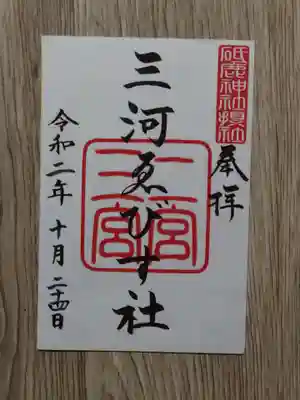 砥鹿神社摂社
奉拝
三河ゑびす社
二宮
三宮
令和二年 十月 二十四日